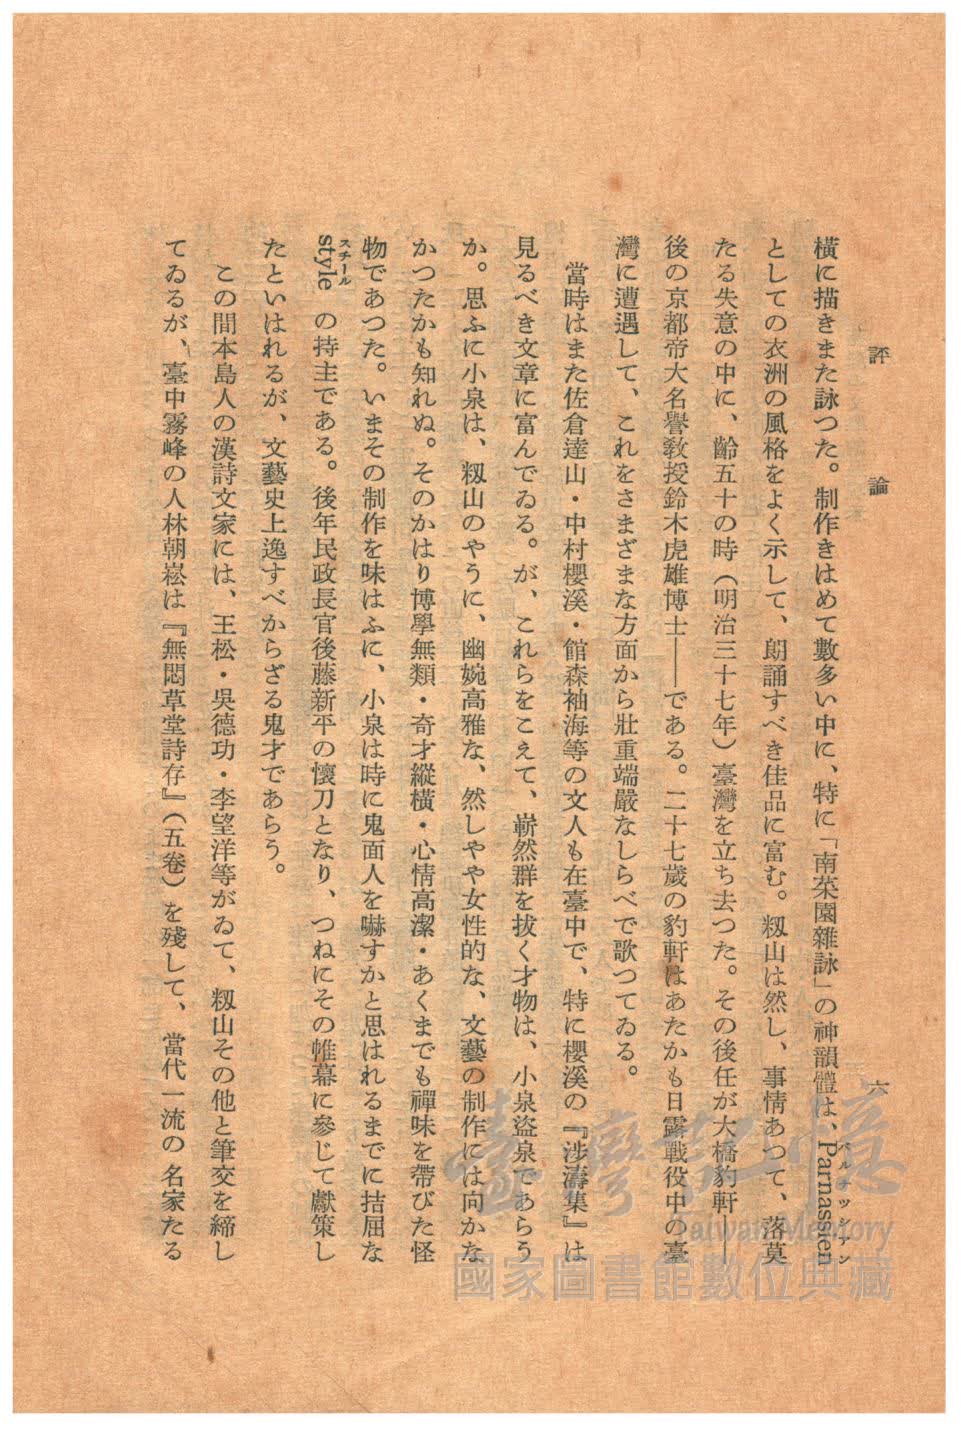 評論
六
横に描きまた詠つた。制作きはめて數多い中に、特に「南菜園雜詠」の神韻體は、Parnassien
パルナッシアン
としての衣洲の風格をよく示して、朗誦すべき佳品に富む。籾山は然し、事情あつて、落莫
たる失意の中に、齡五十の時（明治三十七年）臺灣を立ち去つた。その後任が大橋豹軒――
後の京都帝大名譽教授鈴木虎雄博士――である。二十七歲の豹軒はあたかも日露戰役中の臺
灣に遭遇して、これをさまざまな方面から壯重端嚴なしらべで歌つてゐる。
當時はまた佐倉達山・中村櫻溪・館森袖海等の文人も在臺中で、特に櫻溪の『涉濤集』は
見るべき文章に富んでゐる。が、これらをこえて、嶄然群を拔く才物は、小泉盜泉であらう
か。思ふに小泉は、籾山のやうに、幽婉高雅な、然しやや女性的な、文藝の制作には向かな
かつたかも知れぬ。そのかはり博學無類・奇才縱橫・心情高潔・あくまでも禪味を帶びた怪
物であつた。いまその制作を味はふに、小泉は時に鬼面人を嚇すかと思はれるまでに拮屈な
スチール
style の持主である。後年民政長官後藤新平の懷刀となり、つねにその帷幕に參じて獻策し
たといはれるが、文藝史上逸すべからざる鬼才であらう。
この間本島人の漢詩文家には、王松・吳德功・李望洋等がゐて、籾山その他と筆交を締し
てゐるが、臺中霧峰の人林朝崧は『無悶草堂詩存』（五卷）を殘して、當代一流の名家たる
臺灣記憶
Taiwan Memory
國家圖書館數位典藏